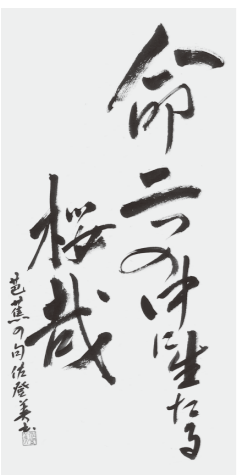 命二つの中に生たる
桜哉
芭蕉の句佐登美書